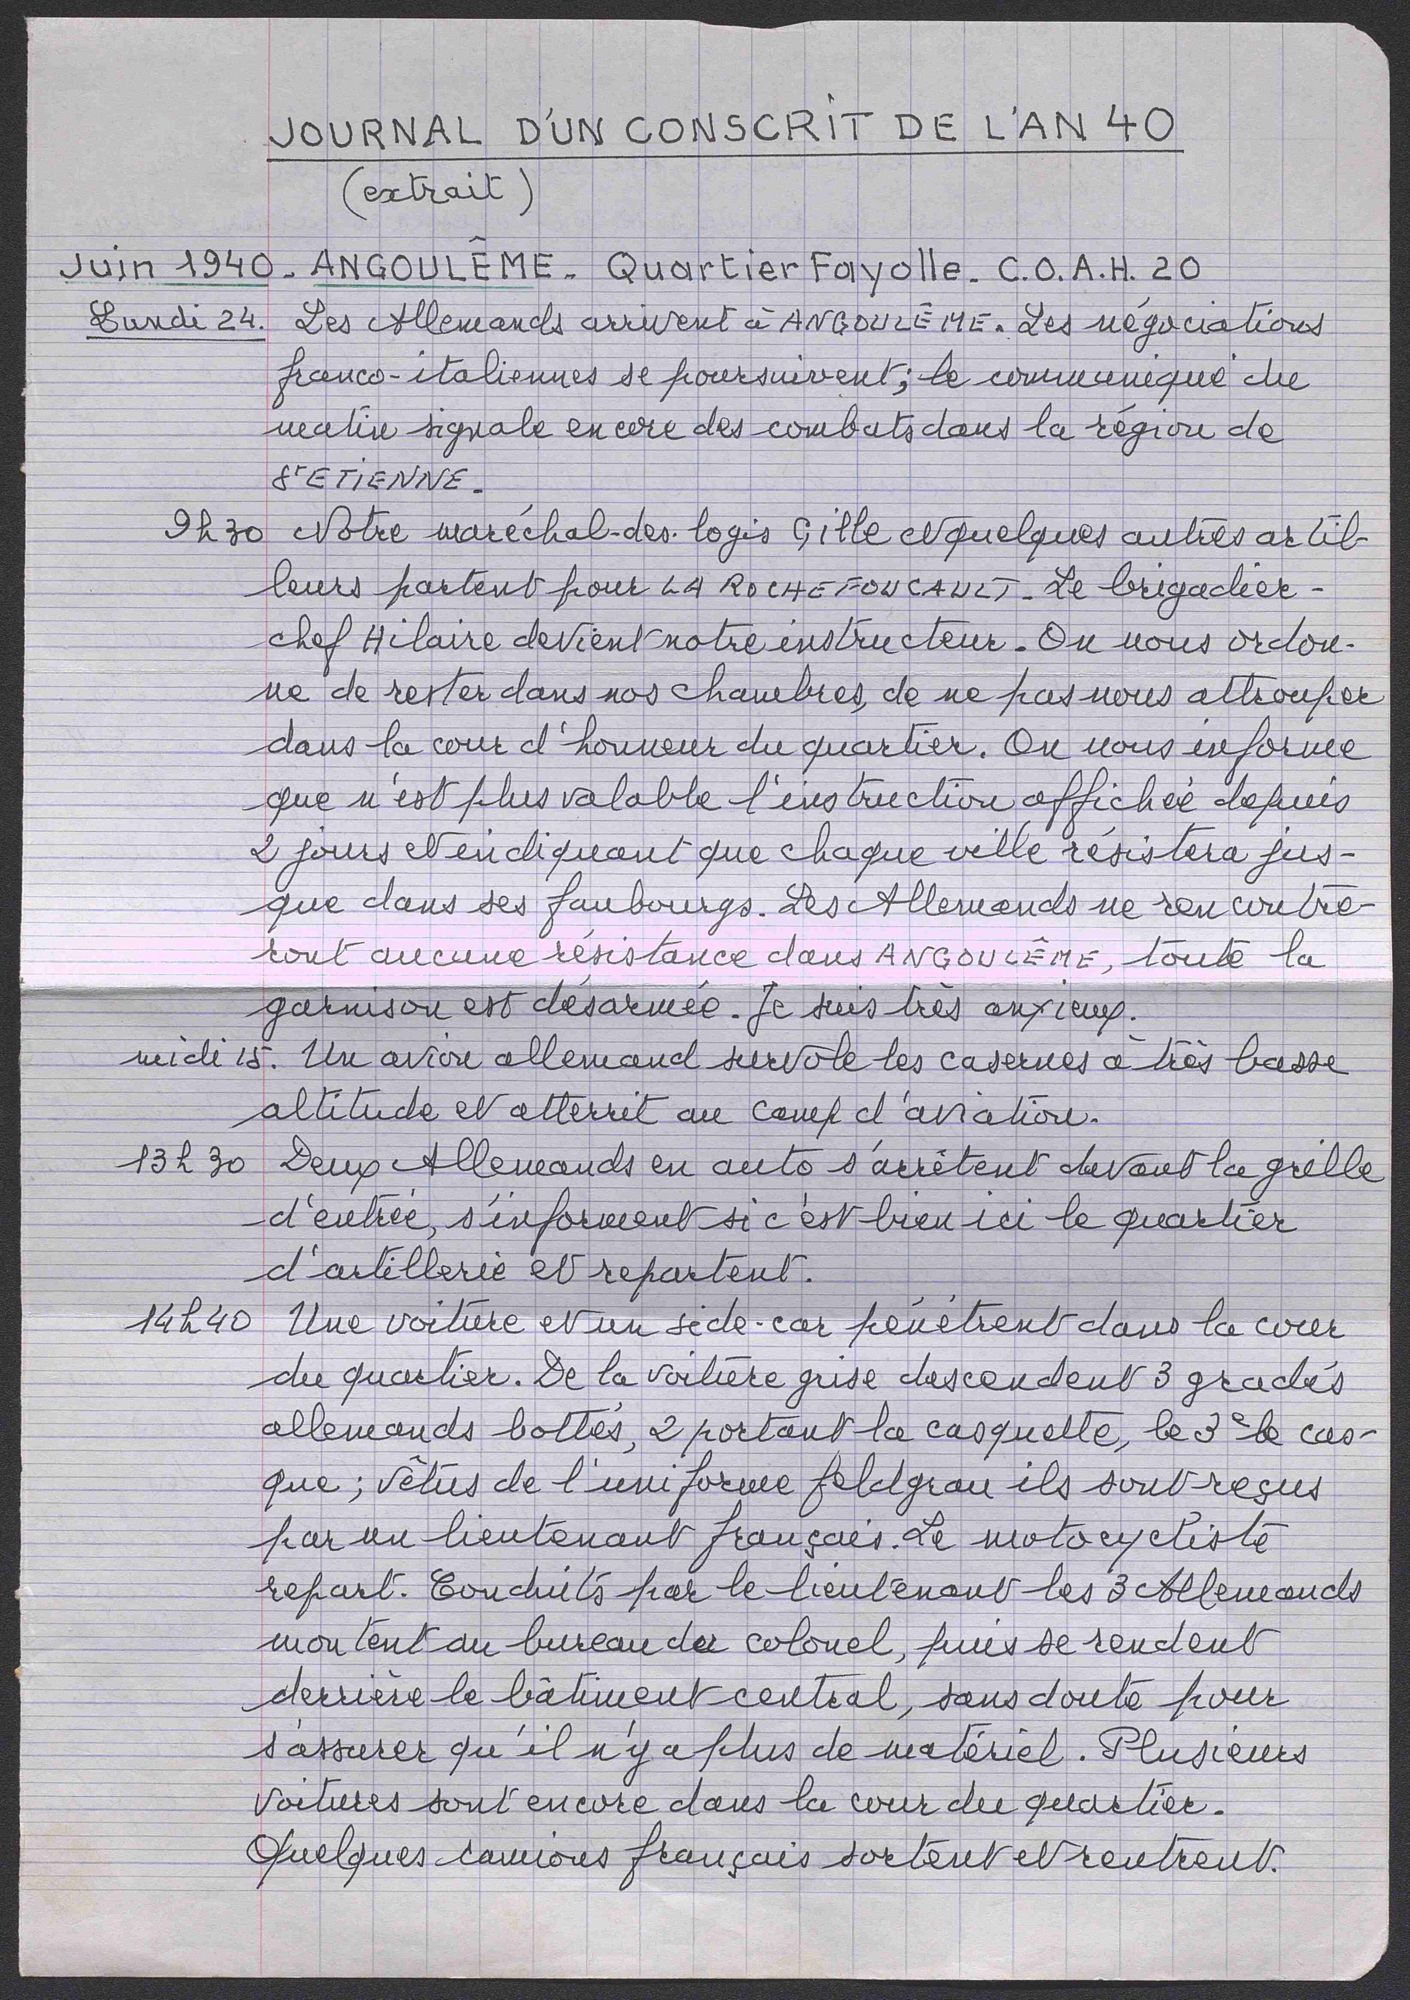 JOURNAL D'UN CONSCRIT DE L'AN 40
(extrait)
Juin 1940 - ANGOULÊME - Quartier Fayolle - C.O.A.H. 20
Lundi 24. Les Allemands arrivent à ANGOULÊME. Les négociations
franco-italiennes se poursuivent; le communiqué du
matin signale encore des combats dans la région de
St ETIENNE.
9h30 Notre maréchal-des-logis Gille et quelques autres artil-
leurs partent pour LA ROCHEFOUCAULT. Le brigadier-
chef Hilaire devient notre instructeur. On nous ordon-
ne de rester dans nos chambres, de ne pas nous attrouper
dans la cour d'honneur du quartier. On nous informe
que n'est plus valable l'instruction affichée depuis
2 jours et indiquant que chaque ville résistera jus-
que dans ses faubourgs. Les Allemands ne rencontre-
ront aucune résistance dans ANGOULÊME, toute la
garnison est désarmée. Je suis très anxieux.
midi 15. Un avion allemand survole les casernes à très basse
altitude et atterrit au camp d'aviation.
13h30 Deux Allemands en auto s'arrêtent devant la grille
d'entrée, s'informent si c'est bien ici le quartier
d'artillerie et repartent.
14h40 Une voiture et un side-car pénètrent dans la cour
du quartier. De la voiture grise descendent 3 gradés
allemands bottés, 2 portant la casquette, le 3e le cas-
que; vêtus de l'uniforme feldgrau ils sont reçus
par un lieutenant français. Le motocycliste
repart. Conduits par le lieutenant les 3 Allemands
montent au bureau du colonel, puis se rendent
derrière le bâtiment central, sans doute pour
s'assurer qu'il n'y a plus de matériel. Plusieurs
voitures sont encore dans la cour du quartier.
Quelques camions français sortent et rentrent.